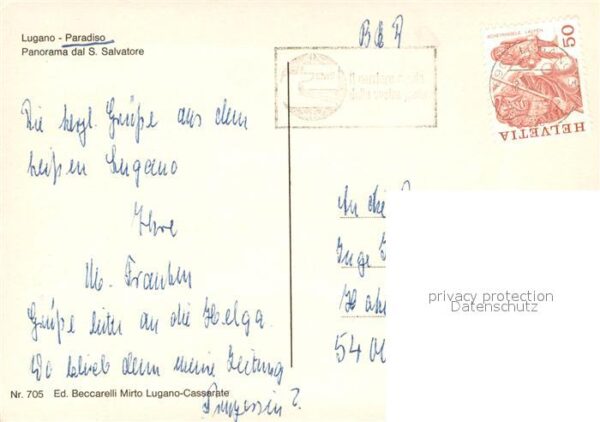 Lugano - Paradiso
Panorama dal S. Salvatore
HELVETIA
50
Die herzl. Grüße aus dem
heißen Lugano
Ihre
M.
Grüße bitte an die Helga.
Wo blieb denn meine Zeitung
Nr. 705 Ed. Beccarelli Mirto Lugano-Cassarate
An die
Inge
54
privacy protection
Datenschutz